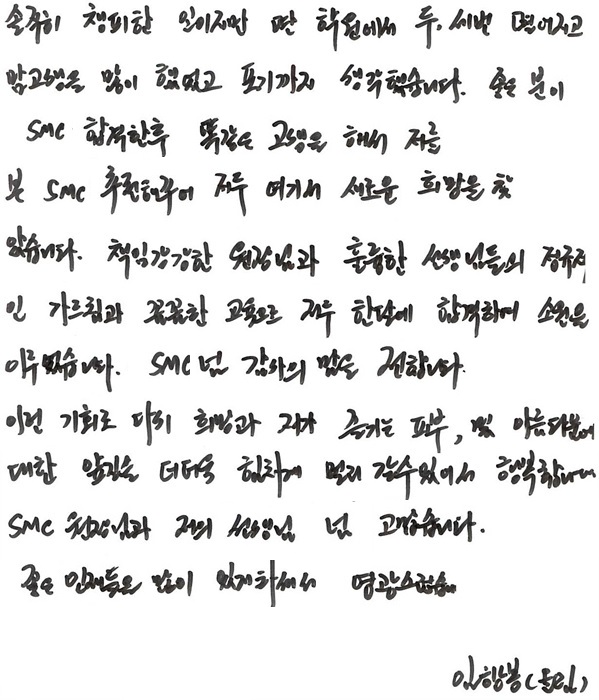 솔직히 챙피한 일이지만 딴 학원에서 두.세번 떨어지고
맘고생을 많이 했었고 포기까지 생각했습니다. 좋은 분이
SMC 합격한후 똑같은 고생을 해서 저를
본 SMC 추천해주어 저두 여기서 새로운 희망을 찾
았습니다. 책임감강한 원장님과 훌륭한 선생님들의 정규적
인 가르침과 꼼꼼한 교육으로 저두 한달에 합격하여 소원을
이루었습니다. SMC 넘 감사의 맘을 전합니다.
이런 기회로 다시 희망과 제가 즐기는 피부, 및 아름다움에
대한 앞길을 더더욱 힘차게 멀리 갈수있어서 행복합니다
SMC 원장님과 저의 선생님 넘 고맙습니다.
좋은 인재들을 많이 있게하셔서 영광스럽습